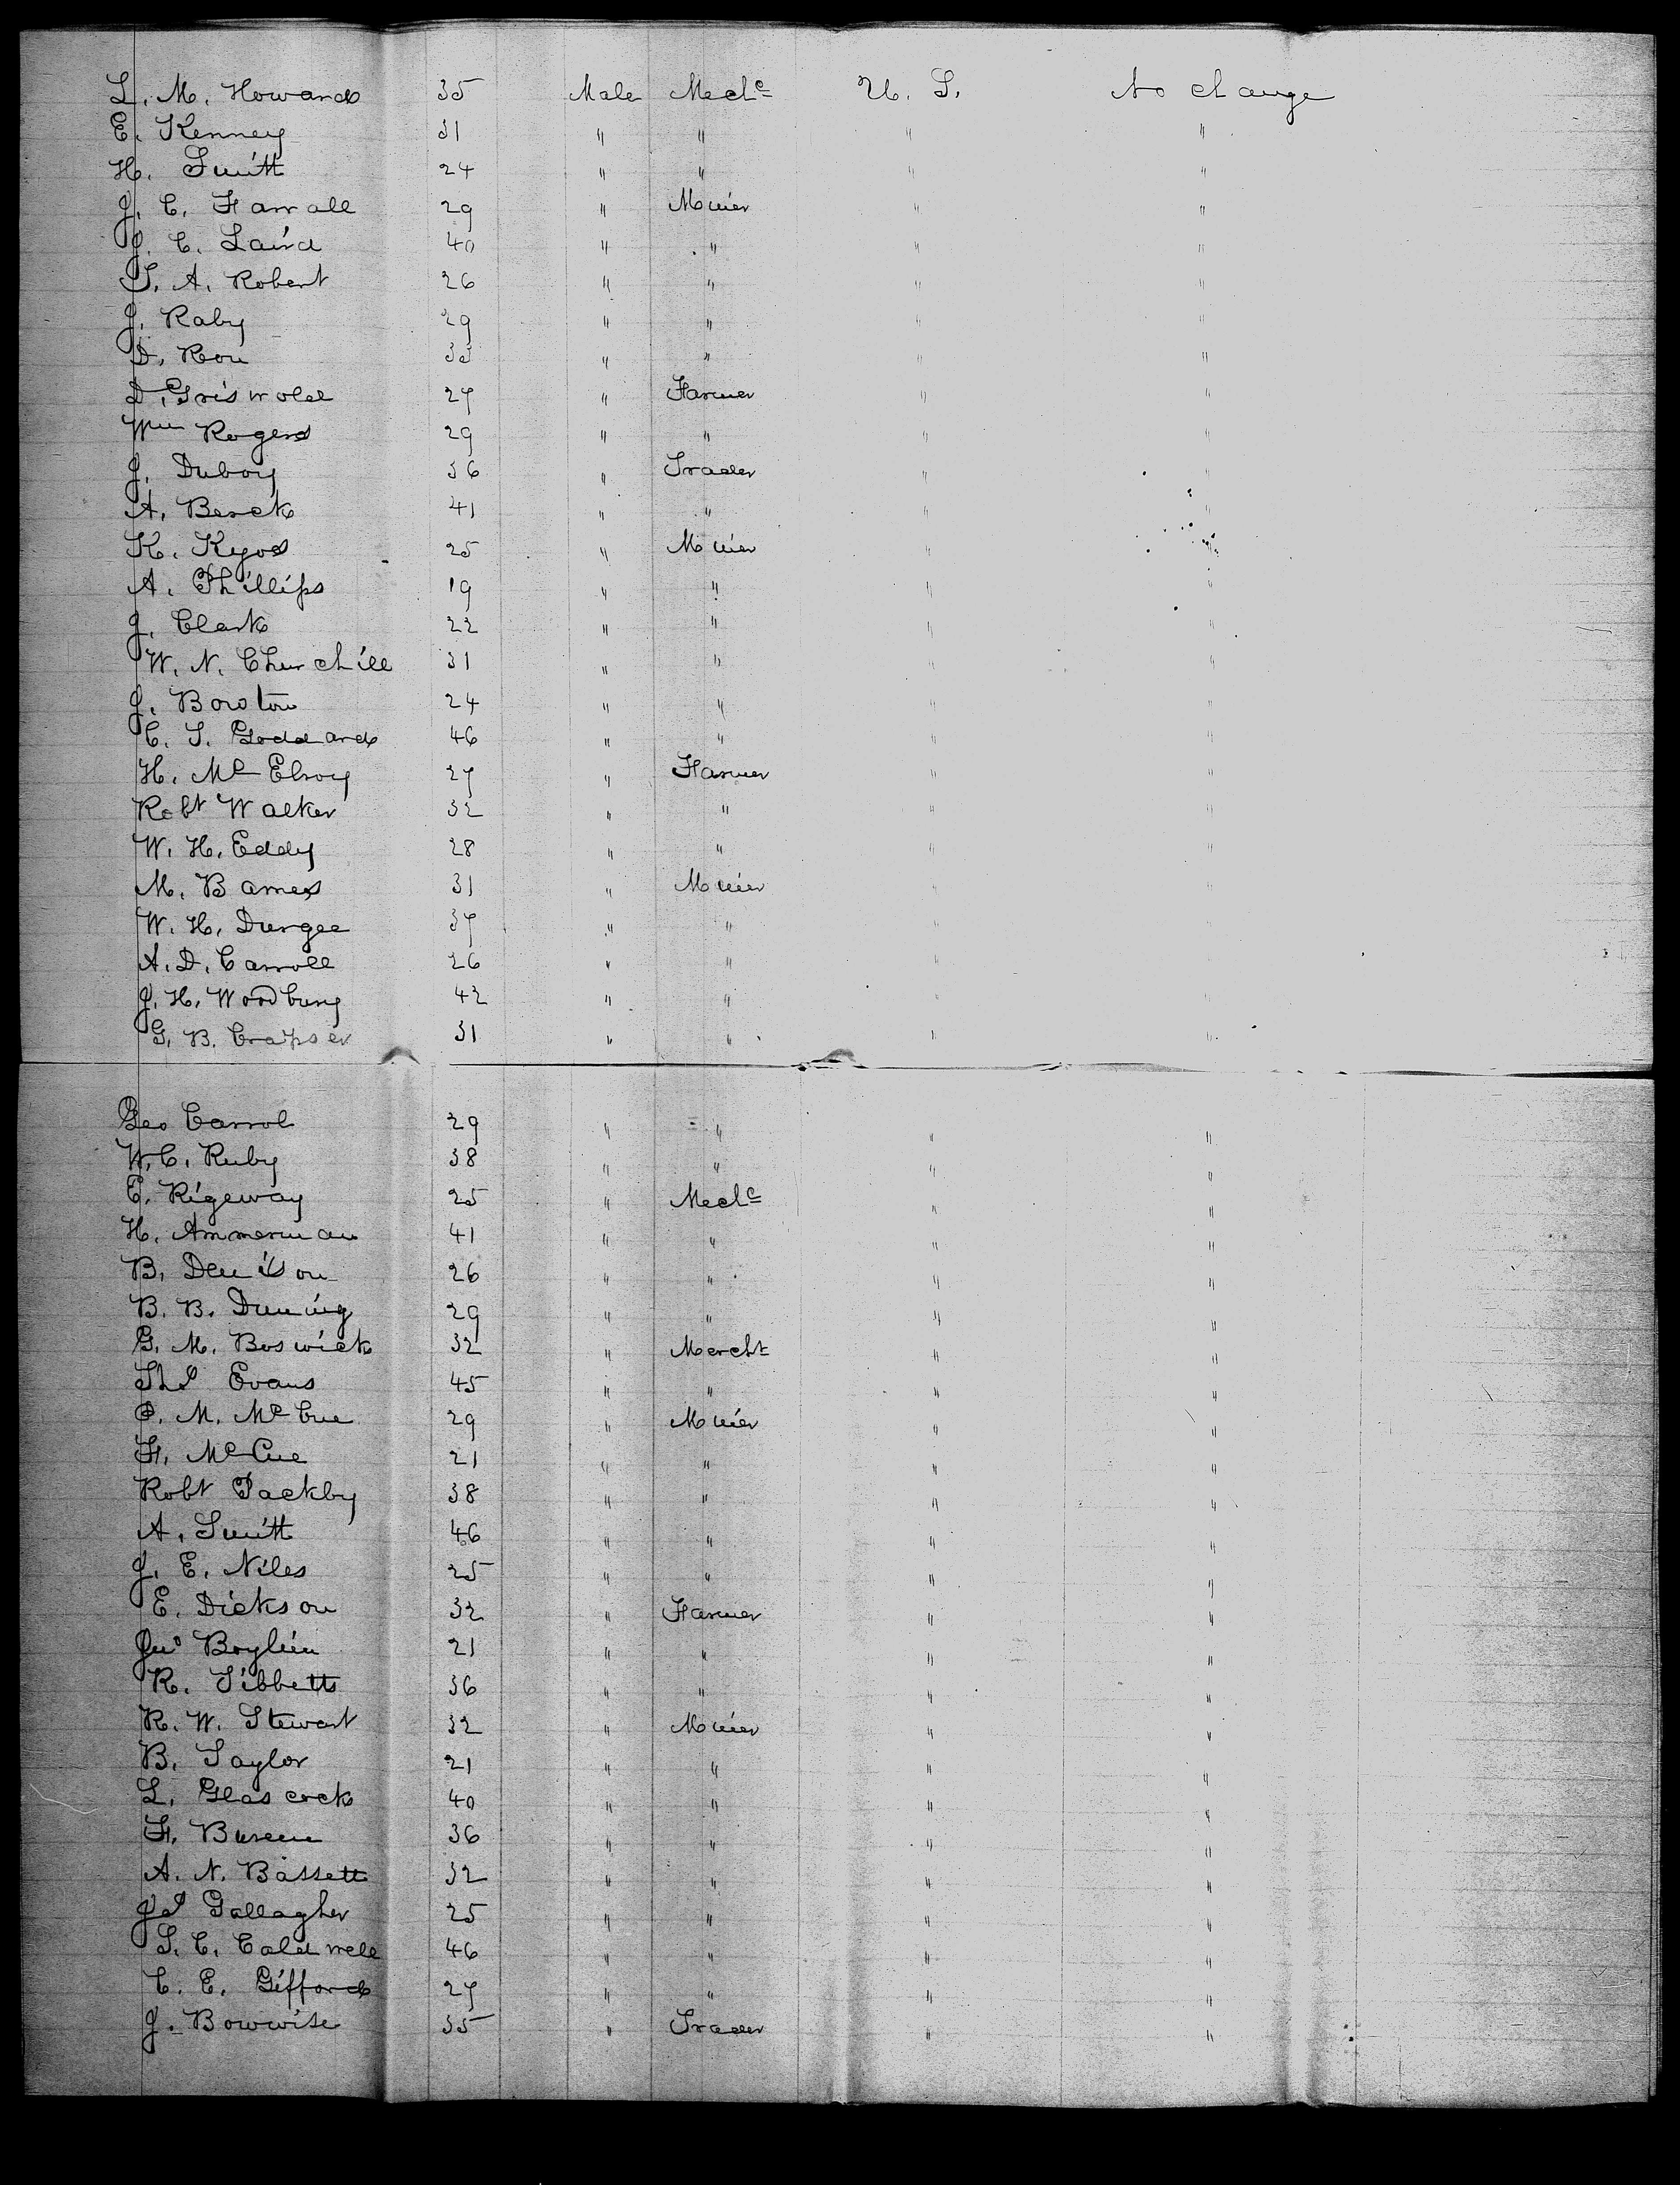 L. M. Howard 35 Male Mech<sup>c</sup> U. S. No change
E. Kenney 31 " " " "
H. Smith 24 " " " "
J. C. Farrall 29 " Miner " "
J. C. Laird 40 " " " "
S. A. Robert 26 " " " "
J. Raby 29 " " " "
D. Rou 33 " " " "
D. Griswold 27 " Farmer " "
Wm Rogers 29 " " " "
J. Duboy 36 " Trader " "
A. Berck 41 " " " "
K. Kyos 25 " Miner " "
A. Phillips 19 " " " "
J. Clark 22 " " " "
W. N. Churchill 31 " " " "
J. Bowton 24 " " " "
C. S. Goddard 46 " " " "
H. McElroy 27 " Farmer " "
Robt Walker 32 " " " "
W. H. Eddy 28 " " " "
M. Barnes 31 " Miner " "
W. H. Durgee 37 " " " "
A. D. Carroll 26 " " " "
J. H. Woodbury 42 " " " "
G. B. Crapser 31 " " " "
Geo Carrol 29 " " " "
W. C. Ruby 38 " " " "
E. Rigeway 25 " Mech<sup>c</sup> " "
H. Ammerman 41 " " " "
B. Denison 26 " " " "
B. B. Duning 29 " " " "
G. M. Boswick 32 " Mercht " "
Ths Evans 45 " " " "
P. M. McCue 29 " Miner " "
F. McCue 21 " " " "
Robt Packby 38 " " " "
A. Smith 46 " " " "
J. E. Niles 25 " " " "
E. Dickson 32 " Farmer " "
Jno Boylin 21 " " " "
R. Tibbetts 36 " " " "
R. W. Stewart 32 " Miner " "
B. Taylor 21 " " " "
L. Glascock 40 " " " "
F. 36 " " " "
A. N. Bassett 32 " " " "
Js Gallagher 25 " " " "
S. C. Caldwell 46 " " " "
C. E. Gifford 27 " " " "
J. Bowwise 35 " Trader " "